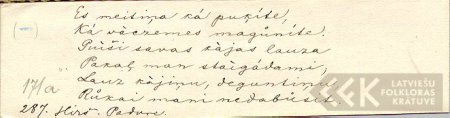 Es meitiņa kà puķíte,
Kà vàczemes magùníte.
Pùíši savas kàjas lauza
Pakaļ man staigàdami,
Lauz kàjiņu, deguntiņu
Rùkai mani nedabùsit.
171a
287. Hirš. Padure.
LATVIEŠU
FOLKLORAS
KRĀTUVE